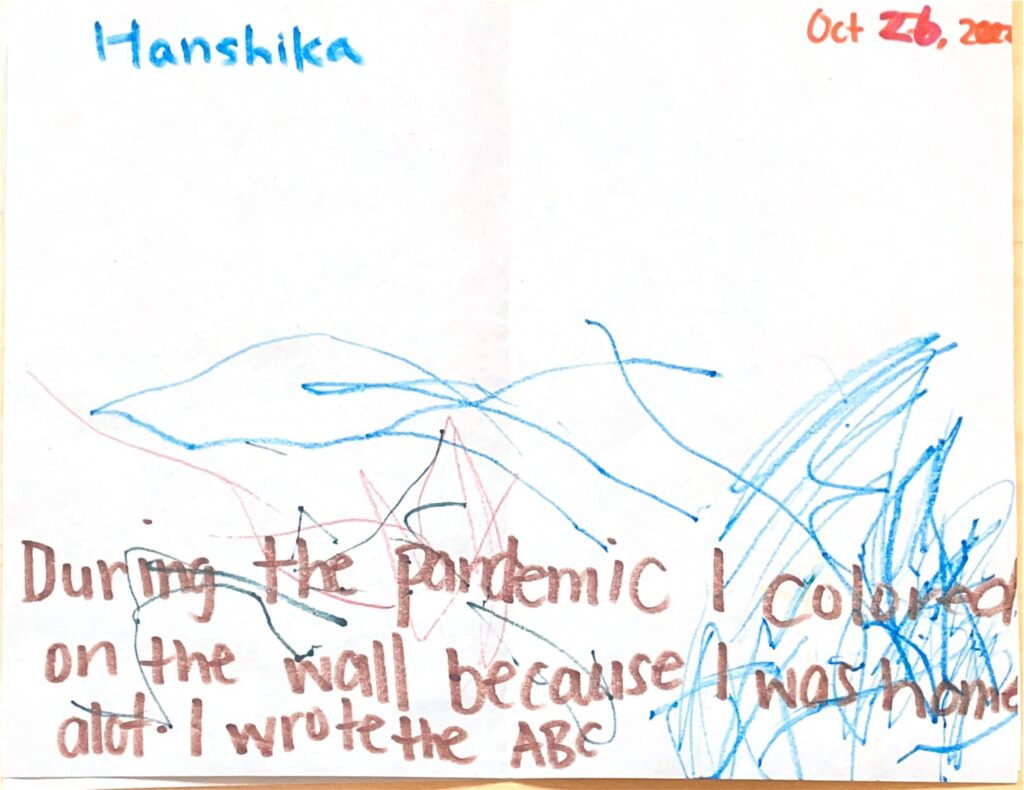 Hanshika
Oct 26,
During the pandemic I colored
on the wall because I was home
alot. I wrote the ABC